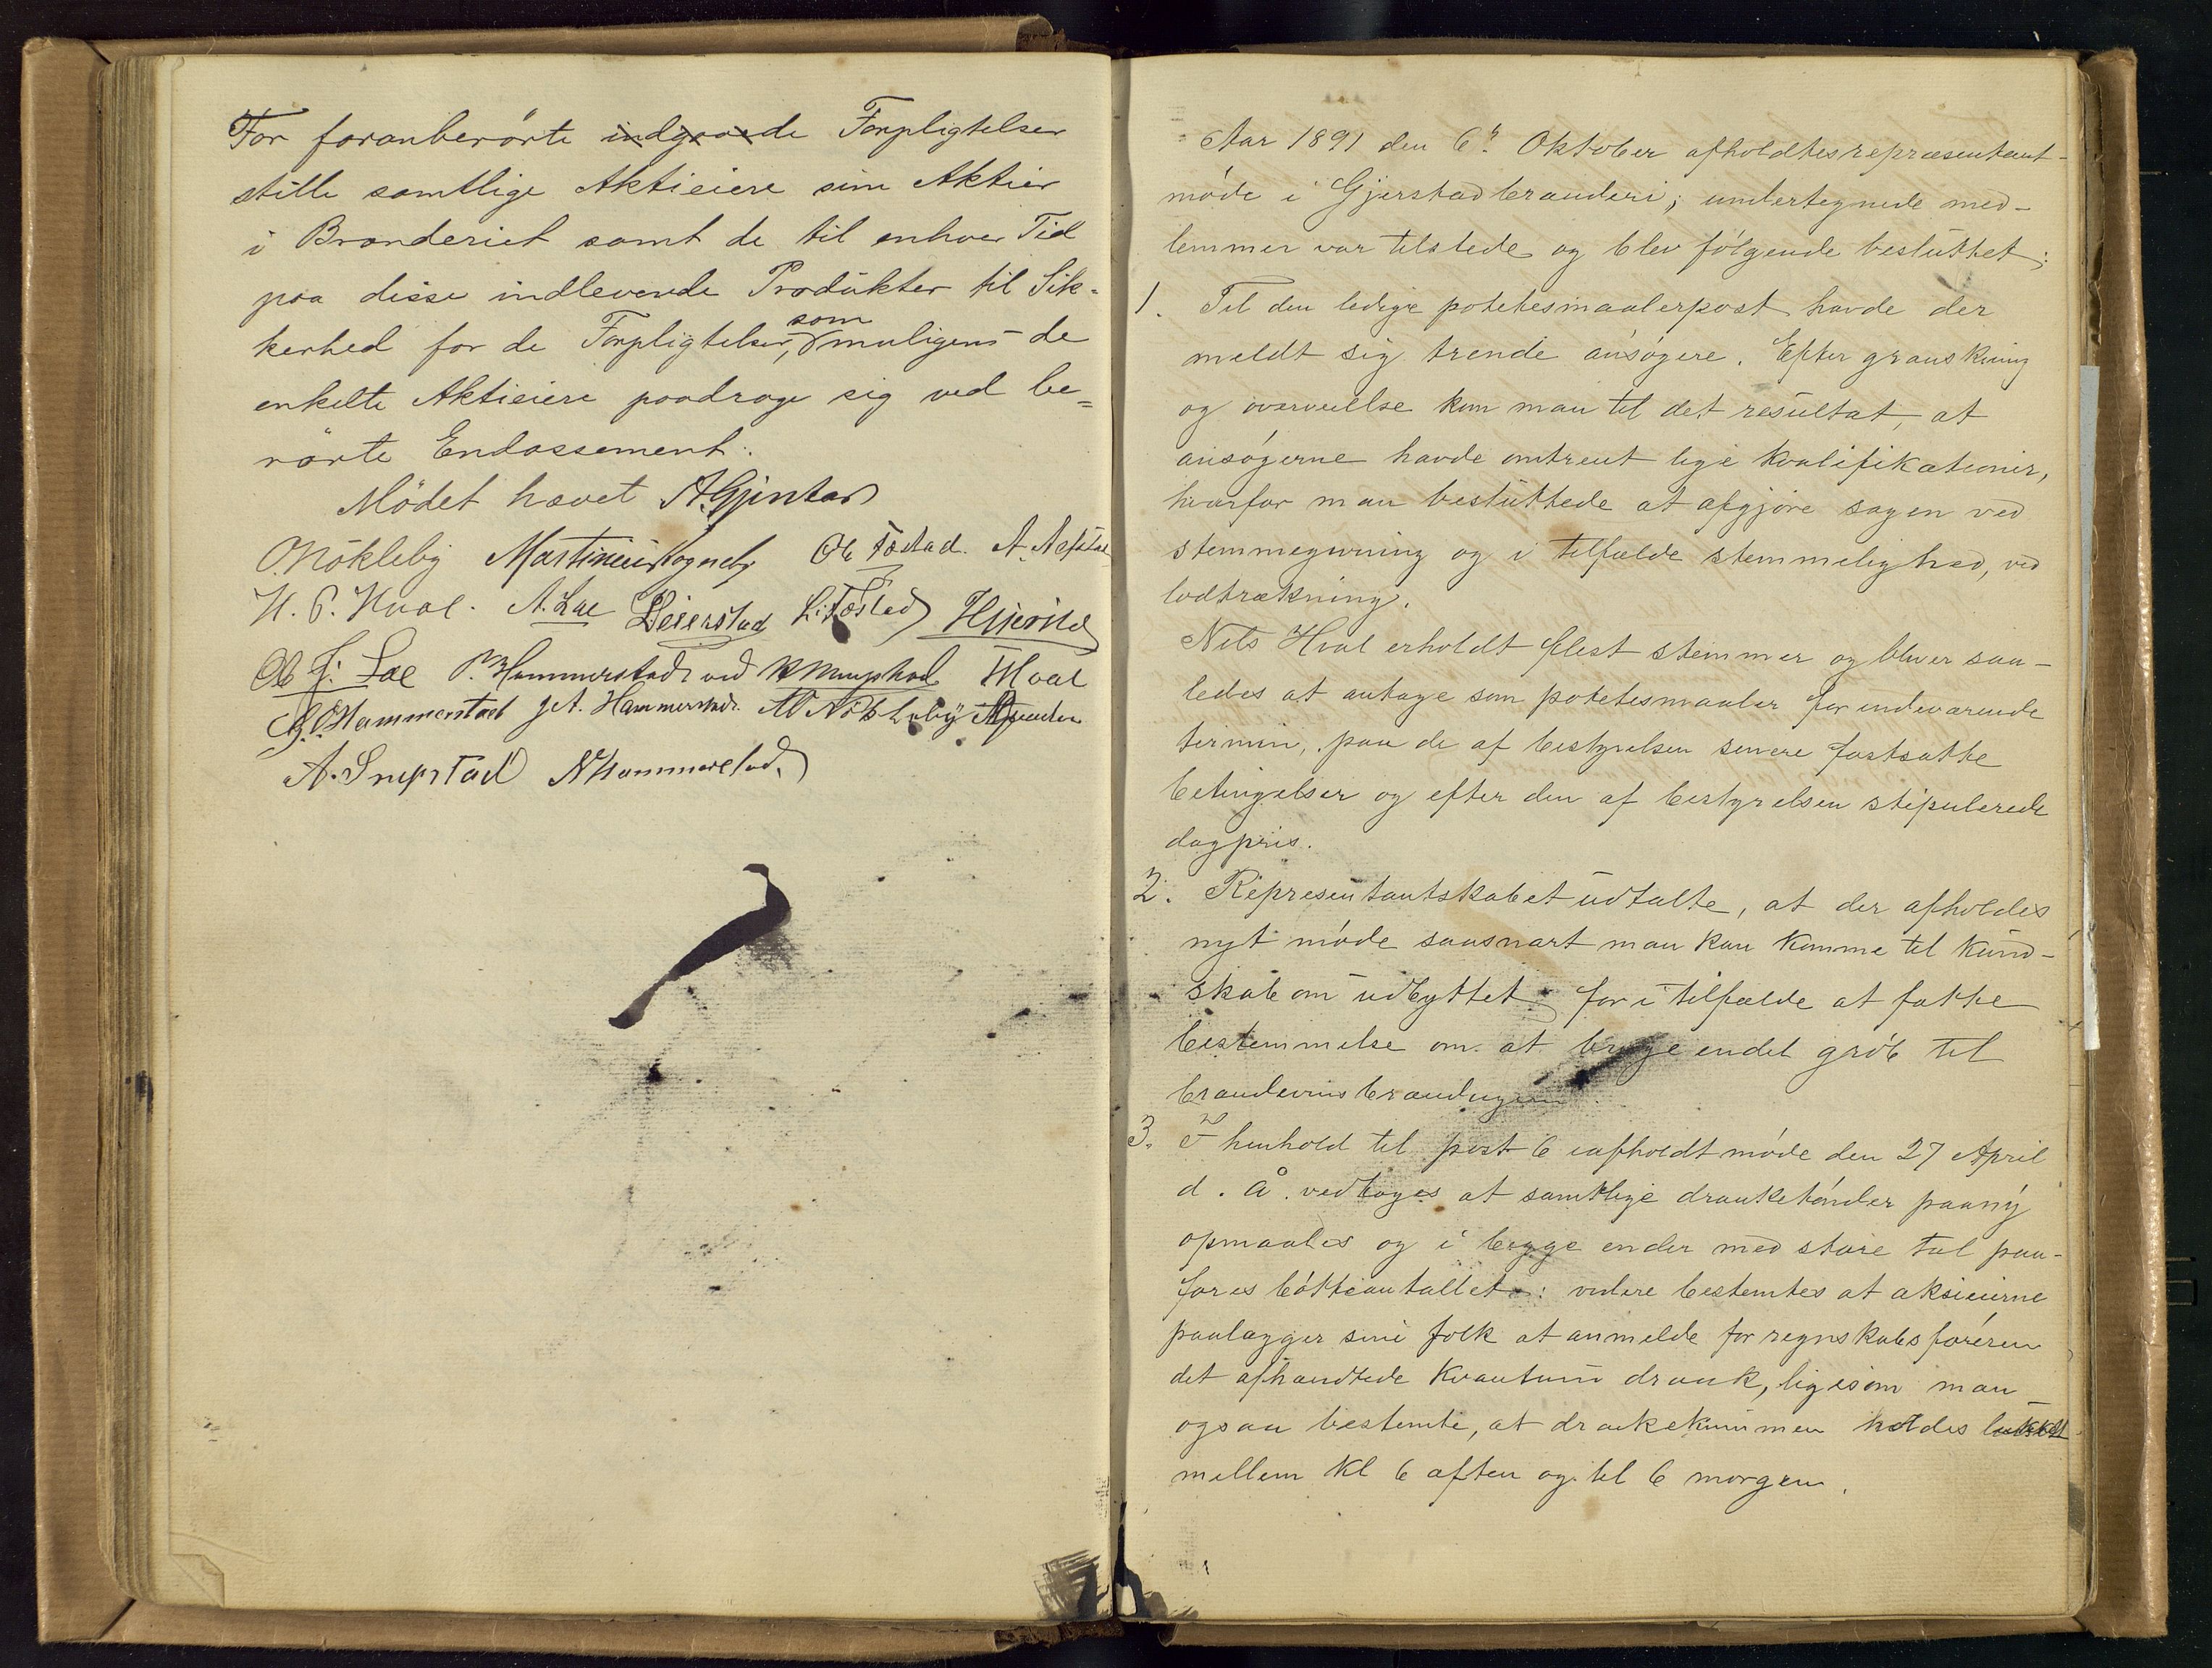 For foranberörte indgaaede Forpligtelser
stille samtlige Aktieiere sine Aktier
i Brænderiet samt de til enhver Tid
paa disse indleverede Produkter til Sik-
kerhed for de Forpligtelser, som muligens de
enkelte Aktieiere paadrage sig ved be-
rörte Endossement.
Mödet hævet A. Gjerstad
O. Nökleby Martinius Rogneby Ole Föstad. A. Nefstad
H. P. Hval. A. Lae Deierstad L. Föstad
Ole J. Lae P. Hammerstad ved Hval
G. O. Hammerstad J. A. Hammerstad. M Nökleby
A. Snipstad N Hammerstad.
Aar 1891 den 6te Oktober afholdtes repræsentant-
möde i Gjerstad brænderi; undertegnede med-
lemmer var tilstede og blev fölgende besluttet;
1. Til den ledige potetesmaalerpost havde der
meldt sig trende ansögere. Efter granskning
og overveielse kom man til det resultat, at
ansögerne havde omtrent lige kvalifikationer,
hvorfor man besluttede at afgjöre sagen ved
stemmegivning og i tilfælde stemmelighed, ved
lodtrækning.
Nils Hval erholdt flest stemmer og bliver saa-
ledes at antage som potetesmaaler for indeværende
termin, paa de af bestyrelsen senere fastsatte
betingelser og efter den af bestyrelsen stipulerede
dagpris.
2. Representantskabet udtalte, at der afholdes
nyt möde saasnart man kan komme til kund-
skab om udbyttet for i tilfælde at fatte
bestemmelse om at bruge endel gröb til
brændevinsbrændingen.
3. I henhold til post 6 i afholdt möde den 27 April
d. å. vedtoges at samtlige dranketönder paany
opmaales og i begge ender med store tal paa-
föres bötteantallet: videre bestemtes at aksieierne
paalægger sine folk at anmelde for regnskabsföreren
det afhændtede kvantum drank, ligesom man
ogsaa bestemte, at drankekummen holdes lukket
mellem Kl 6 aften og til 6 morgen.